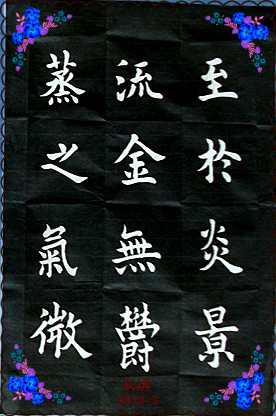 至於炎景
流金無鬱
蒸之氣微
2013-2